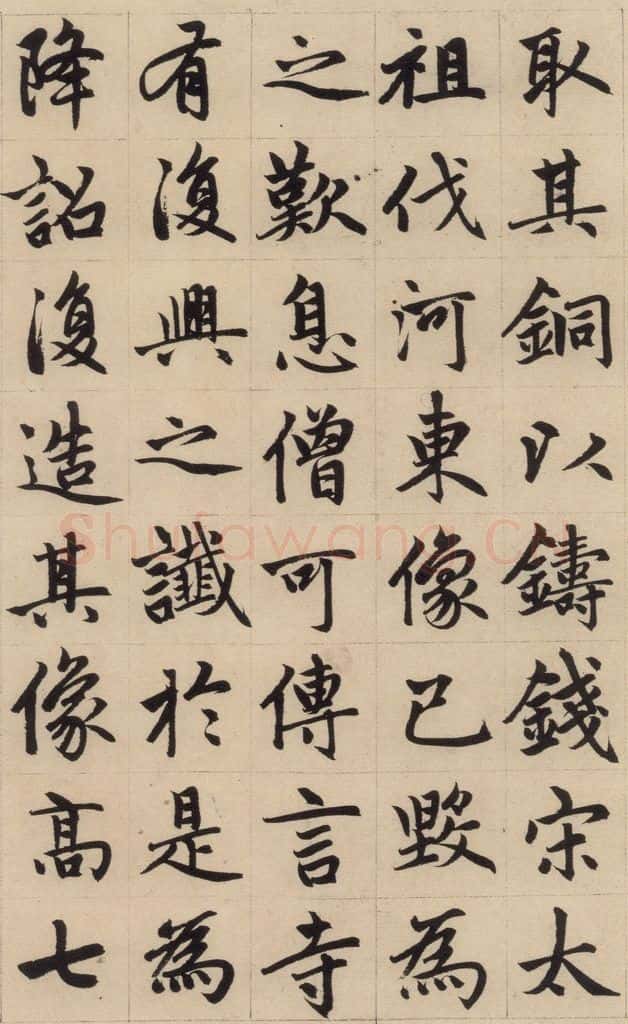 取其銅以鑄錢宋太
祖伐河東像已毀為
之歎息僧可傳言寺
有復興之讖於是為
降詔復造其像高七
Shufawang.cn